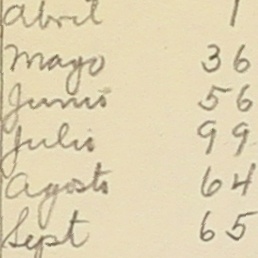 Abril 1
Mayo 36
Junio 56
Julio 99
Agosto 64
Sept 65